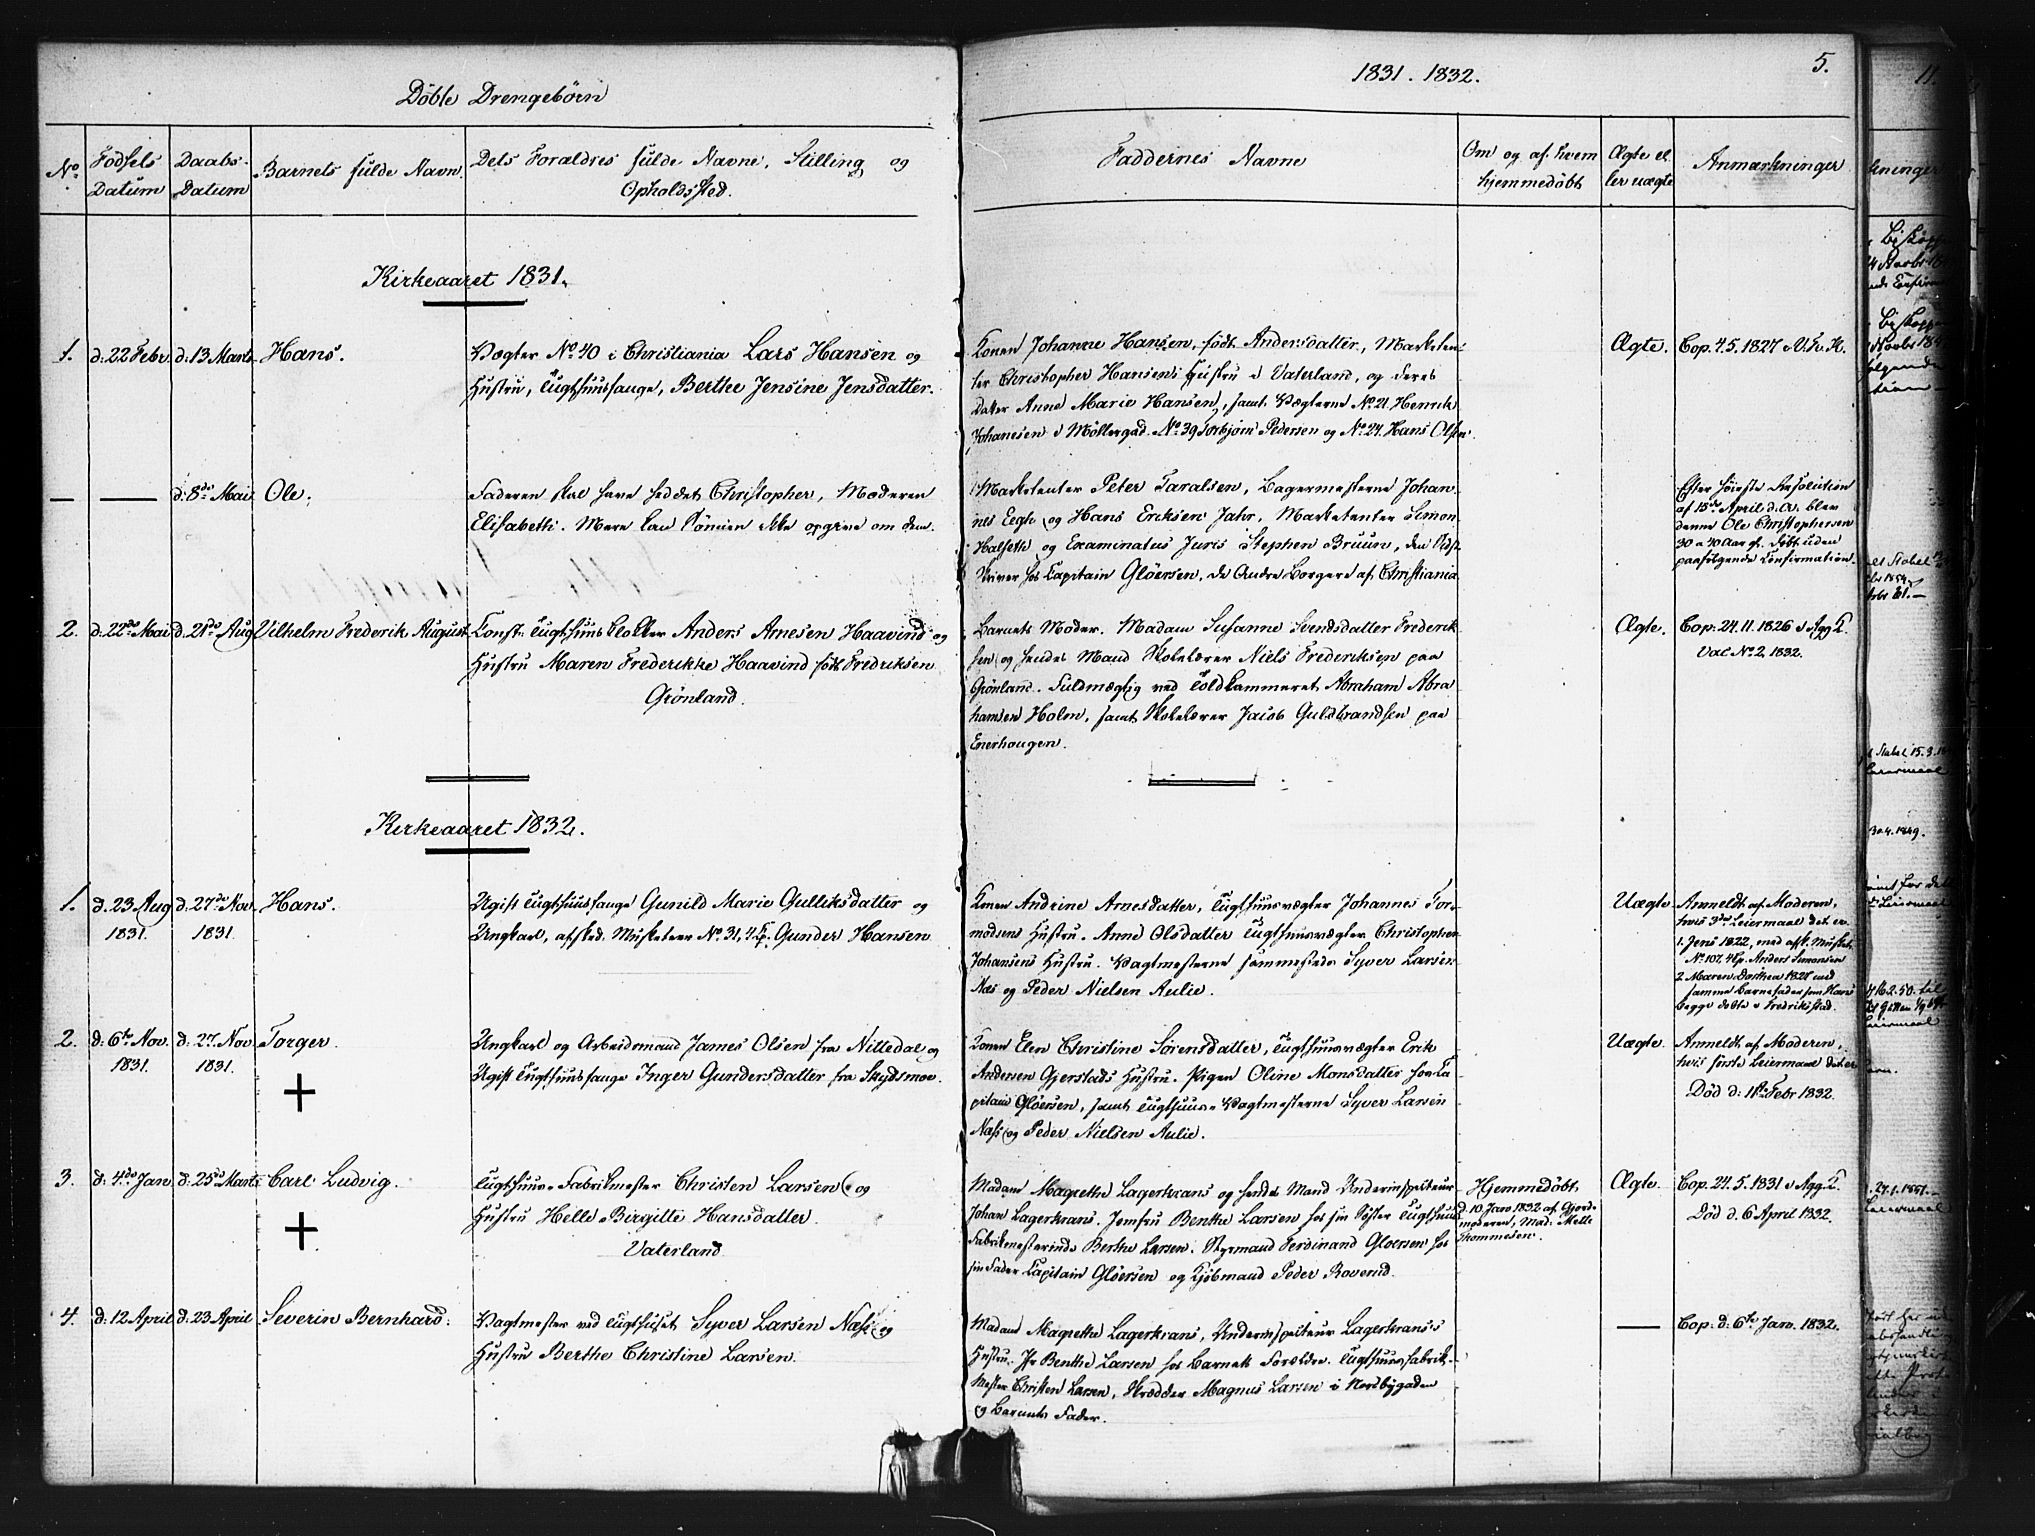 Döbte Drengebörn
No.
Födsels Datum
Daabs-Datum
Barnets fulde Navn.
Dets Forældres fulde Navne, Stilling og
Opholdssted.
Kirkeaaret 1831.
1. d: 22 Febr. d: 13 Marts Hans.
Vægter No. 40 i Christiania Lars Hansen og
Hustru, Tugthuusfange, Berthe Jensine Jensdatter.
— — d: 8de Mai Ole.
Faderen skal have heddet Christopher, Moderen
Elisabeth. Mere kan Sönnen ikke opgive om dem.
2. d: 22de Mai d: 21de Aug Vilhelm Frederik August
Const: Tugthuusklokker Anders Arnesen Haavind og
Hustru Maren Frederikke Haavind föde Fredriksen
Grönland.
Kirkeaaret 1832.
1. d. 23 Aug 1831. d. 27de Nov. 1831. Hans.
Ugift Tugthuusfange Gunild Marie Gulliksdatter og
Ungkarl, afsked. Musketeer No. 31, 4 Cp. Gunder Hansen
2. d: 6te Nov. 1831. d. 27. Nov. 1831. Torger.
Ungkarl og Arbeidsmand James Olsen fra Nittedal og
Ugift Tugthuusfange Inger Gundersdatter fra Skydsmoe.
3. d: 4de Jan. d: 25de Marts Carl Ludvig.
Tugthuus-Fabrikmester Christen Larsen og
Hustru Helle Birgitte Hansdatter.
Vaterland
4. d: 12 April d. 23 April Severin Bernhard:
Vagtmester ved Tugthuset Syver Larsen Næss og
Hustru Berthe Christine Larsen.
1831. 1832.
5.
Faddernes Navne
Om og af hvem
hjemmedöbt
Ægte el
ler uægte
Anmærkninger
Konen Johanne Hansen, födt Andersdatter, Marketen-
ter Christopher Hansens Hustru i Vaterland, og deres
Datter Anne Marie Hansen, samt Vægterne No. 21. Henrik
Johanesen i Möllergad. No. 39 Torbjörn Pedersen og No. 24. Hans Olsen
Ægte.
Cop. 4.5. 1827 i V. F. K.
Marketenter Peter Taralsen, Bagermesterne Johan-
nes Eegh og Hans Eriksen Jahr, Marketenter Simon
Halseth og Examinatus Juris Stephen Bruun, den sidste
Skriver hos Capitain Glöersen, de Andre Borgere af Christiania
Efter höieste Resolution
af 15de April d. A. blev
denne Ole Christophersen
30 a 40 Aar gl. döbt uden
paafölgende Confirmation.
Barnets Moder. Madam Susanne Svendsdatter Frederik-
sen og hendes Mand Skolelærer Niels Frederiksen paa
Grönland. Fuldmægtig ved Toldkammeret Abraham Abra
hamsen Holm, samt Skolelærer Jacob Guldbrandsen paa
Enerhougen.
Ægte.
Cop. 24.11. 1826 i Agg. K.
Vac No. 2, 1832.
Konen Andrine Arnesdatter, Tugthuusvægter Johannes Tor-
modsens Hustru. Anne Olsdatter Tugthuusvægter Christopher
Johansens Hustru. Vagtmesterne sammesteds Syver Larsen
Næs og Peder Nielsen Aulie.
Uægte
Anmeldt af Moderen,
hvis 3de Leiermaal det er
1. Jens 1822, med afsk. Musket.
No. 107, 4 Cp. Anders Simonsen
2. Maren Dorthea 1828 med
samme Barnefader som Hans
begge döbte i Fredrikstad.
Konen Elen Christine Sörensdatter, Tugthuusvægter Erik
Andersen Gjerstads Hustru. Pigen Oline Monsdatter hos Ca
pitain Glöersen, samt Tugthuus-Vagtmesterne Syver Larsen
Næss og Peder Nielsen Aulie.
Uægte
Anmeldt af Moderen,
hvis förste Leiermaal det er
Död d: 11te Febr 1832.
Madam Magrethe Lagerkrans og hendes Mand Underinspecteur
Johan Lagerkrans. Jomfru Benthe Larsen hos sin Söster Tugthuus
Fabrikmesterinde Berthe Larsen. Styrmand Ferdinand Gloersen hos
sin Fader Capitain Glöersen og Kjöbmand Peder Roverud.
Hjemmedöbt
d. 10 Janv 1832 af Gjorde-
moderen, Mad: Mette
Thommesen.
Ægte
Cop. 24.5. 1831 i Agg. K.
Död d. 6 April 1832.
Madam Magrethe Lagerkrans, Underinspecteur Lagerkrans's
Hustru. Jfr Benthe Larsen hos Barnets Forældre. Tugthuus fabrik-
mester Christen Larsen, Skrædder Magnus Larsen i Nordbygaden
og Barnets Fader.
—
Cop. d: 6te Janv. 1832.